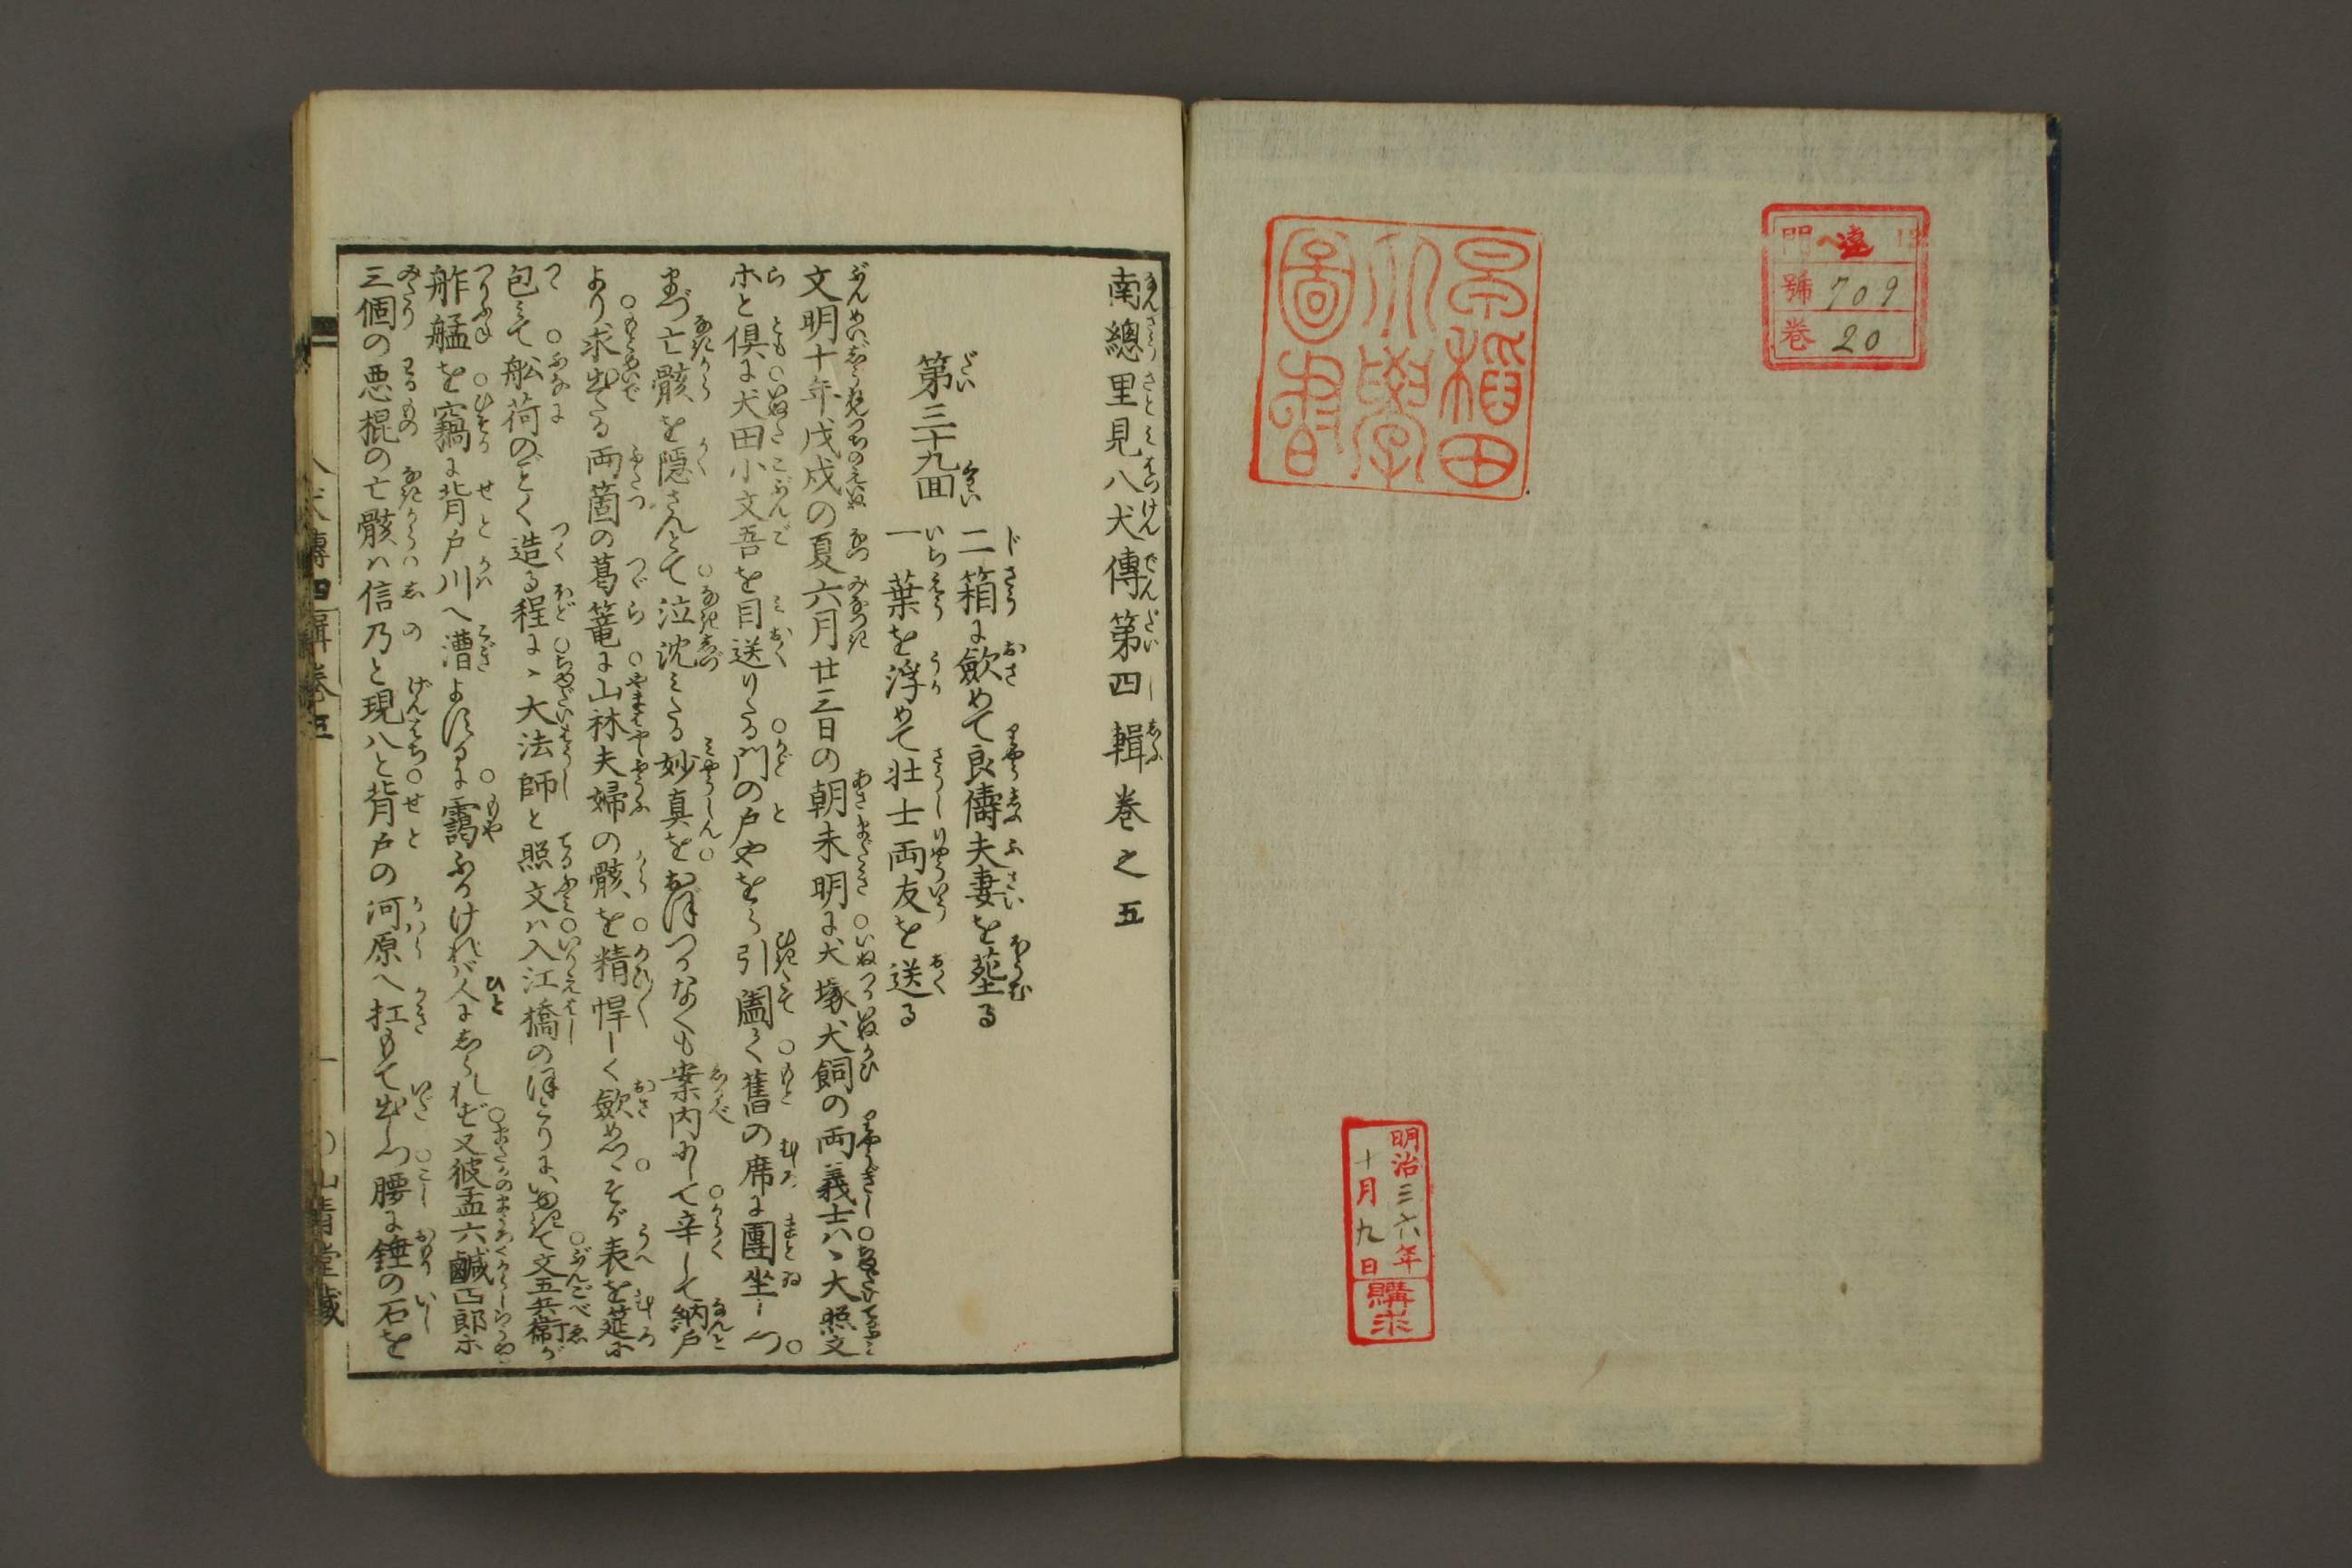 門 ヘ遠 13
號 709
卷 20
早稲田
大學
圖書
明治三六年
十月九日
購求
南總里見八犬傳第四輯巻之五
第三十九回
二箱に斂めて良儔夫妻を葬る
一葉を浮めて壮士両友を送る
文明十年戊戌の夏六月廿三日の朝未明に犬塚犬飼の両義士ハ、大照文
ホと倶に犬田小文吾を目送りたる門の戸やをら引闔て舊の席に團坐しつ
まづ亡骸を隠さんとて泣沈みたる妙真をおぼつかなくも案内にして辛して納戸
より求出たる両箇の葛篭に山林夫婦の骸を精悍しく斂めつゝそが表を莚に
包みて舩荷のごとく造る程に、大法師と照文ハ入江橋のほとりにゆきて文五兵衛が
舴艋を竊に背戸川へ漕よするに靄ふかけれバ人にしられず又彼孟六鹹四郎ホ
三個の悪棍の亡骸ハ信乃と現八と背戸の河原へ扛もて出しつ腰に錘の石を
八犬傳四輯巻五
一
山青堂藏